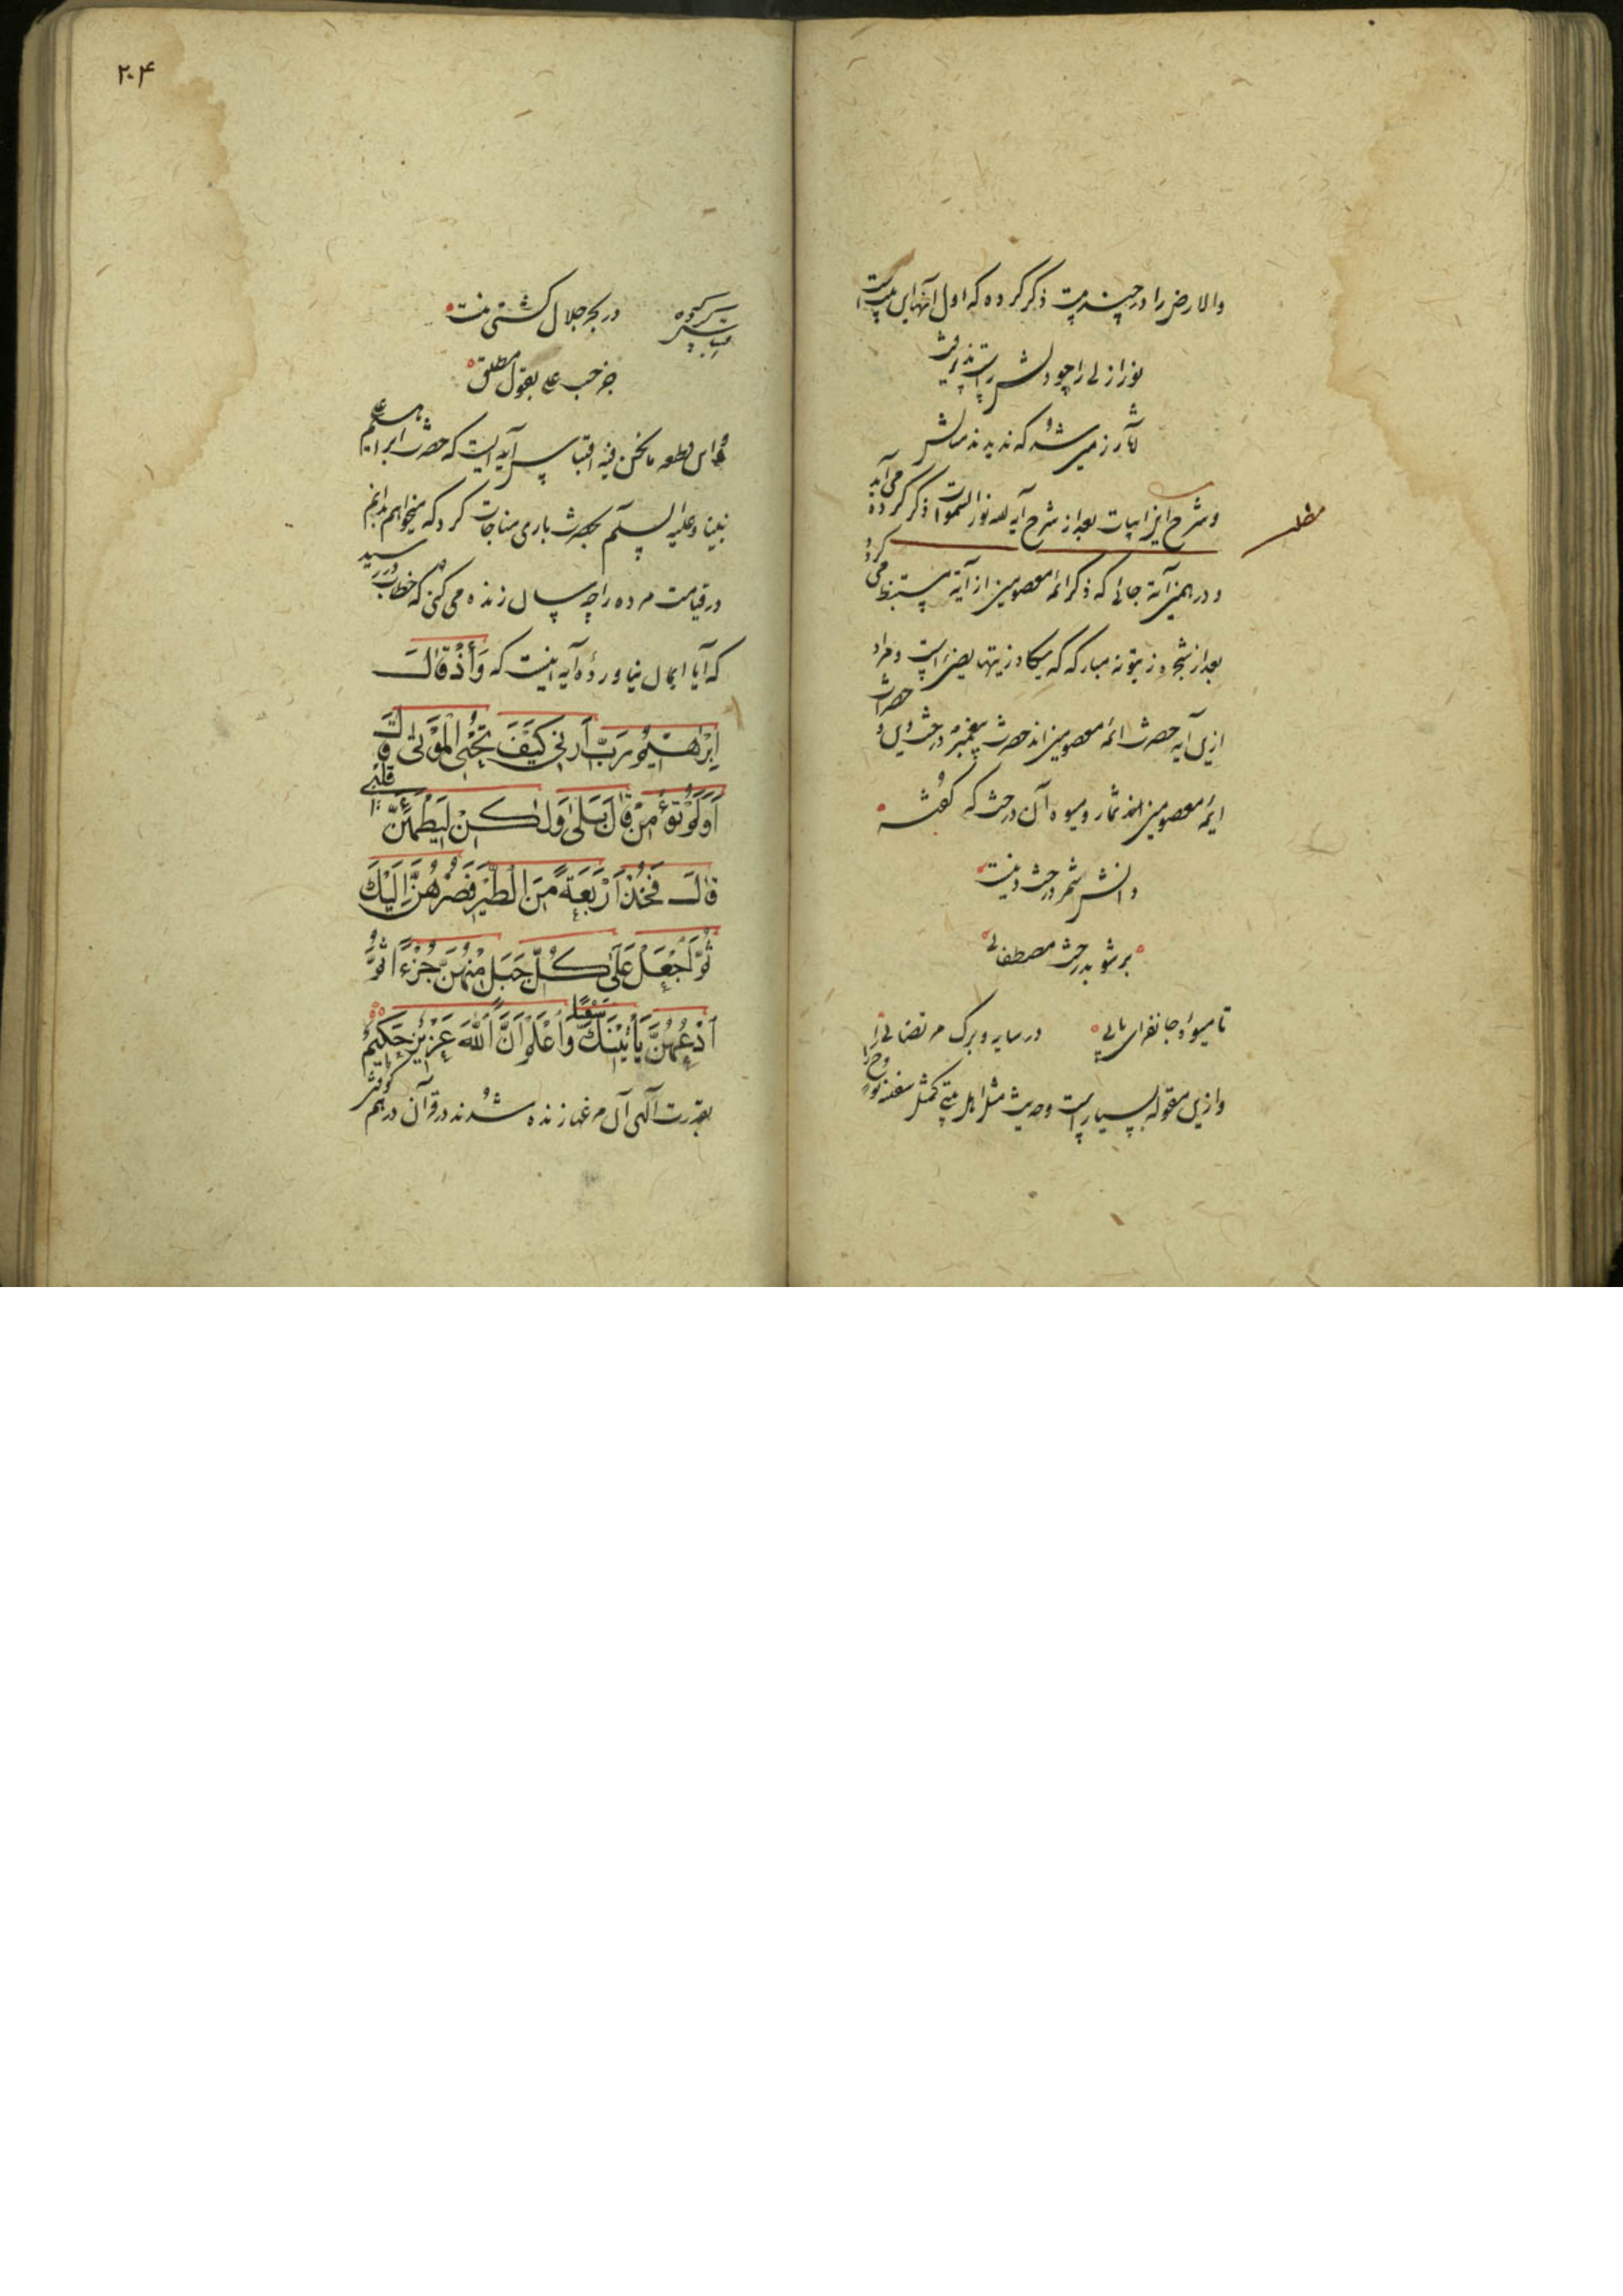 والارض را در چند بیت ذکر کرده که اول آنها این بیت است
نور ازلی را چو دلش راست پذیرفت
تا در زمین شد که ندیدند مثالش
و شرح این ابیات بعد از شرح آیه الله نور السموات ذکر کرده می آید
مطلب
و در همین آیة جائی که ذکر ائمه معصومین از آیة مستنبط می کردد
بعد از شجره زیتونه مبارکه که یکاد زیتها یضیء است و مراد
ازین آیه حضرت ائمه معصومین اند حضرت پیغمبر درخت دین و حضرات
ایمه معصومین اند ثمار و میوه آن درخت که گفته
دانش ثمر درخت دینست
بر شو بدرخت مصطفائی
تا میوه جانفزای یابی
در سایه و برک مرتضائی
و ازین مقوله بسیار است و حدیث مثل اهل بیتی کمثل سفینه نوح را
۲۰۴
اقتباس کرده
در بحر جلال کشتی نیست
جز حب علی بقول مطلق
و این قطعه مانحن فیه اقتباس آیه ایست که حضرت ابراهیم علی
نبینا و علیه السلام بحضرت باری مناجات کرد که میخواهم بدانم
در قیامت مرده را چسان زنده می کنی که خطاب در رسید
که آیا ایمان نیاورده آیه اینست که وَأِذْ قَالَ
اِبْرٰهٖيمُ رَبِّ اَرِنِي كَيْفَ تُحْيِي الْمَوْتٰى قَالَ
اَوَلَمْ تُؤْمِنْ قَالَ بَلٰى وَلٰكِنْ لِيَطْمَئِنَّ قَلْبِي
قَالَ فَخُذْ اَرْبَعَةً مِنَ الطَّيْرِ فَصُرْهُنَّ اِلَيْكَ
ثُمَّ اجْعَلْ عَلٰى كُلِّ جَبَلٍ مِنْهُنَّ جُزْءًا ثُمَّ
اُدْعُهُنَّ يَأْتِيْنَكَ سَعْيًا وَاعْلَمْ اَنَّ اللّٰهَ عَزِيْزٌ حَكِيْمٌ
بقدرت آلهی آن مرغها زنده شدند در قرآن درهم کوفتن